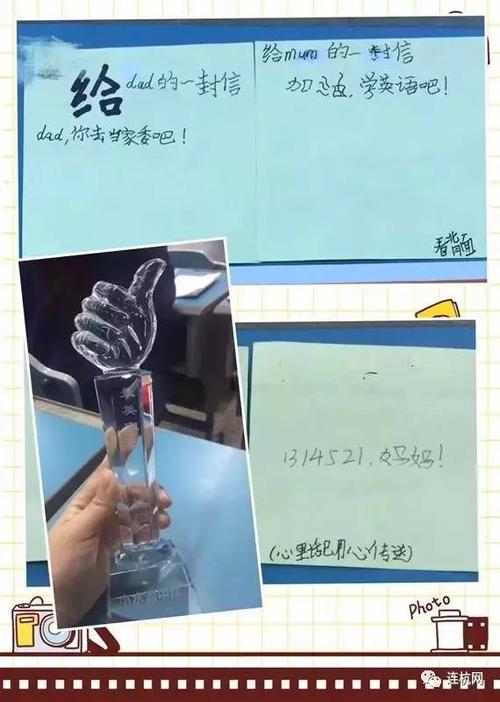 给dad的一封信
dad,你去当家委吧！
给mum的一封信
加油,学英语吧！
看背面
1314521,妈妈！
(心里话已用心传送)
photo
连杭网